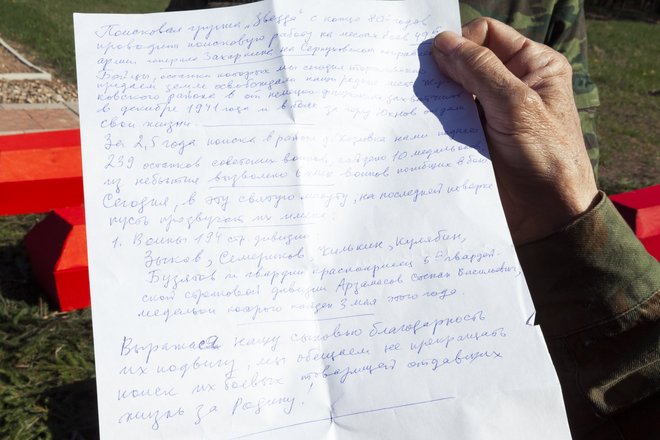 Поисковая группа "Звезда" с конца 80х годов
проводит поисковую работу на местах боев 49ой
армии генерала Захаркина на Серпуховском
Бойцы, останки которых мы сегодня
придаем земле освобождали наши родные места
района от немецко-фашистских захватчиков
в декабре 1941 года и в боях за город Юхнов отдали
свои жизни.
За 2,5 года поиска в районе нами поднято
239 останков советских воинов, найдено 10 медальонов,
из небытия вызволено воинов погибших в бою
Сегодня, в эту святую минуту, на последней поверке
пусть прозвучат их имена:
1. Воины 194 стр. дивизии
Зыков, Семериков, Килькин, Кулябин,
Бузятов и гвардии красноармеец 5ой гвардей-
ской стрелковой дивизии Арзамасов Степан Васильевич,
медальон которого найден 3 мая этого года.
Выражая нашу сыновью благодарность
их подвигу, мы обещаем не прекращать
поиск их боевых товарищей отдавших
жизнь за Родину!